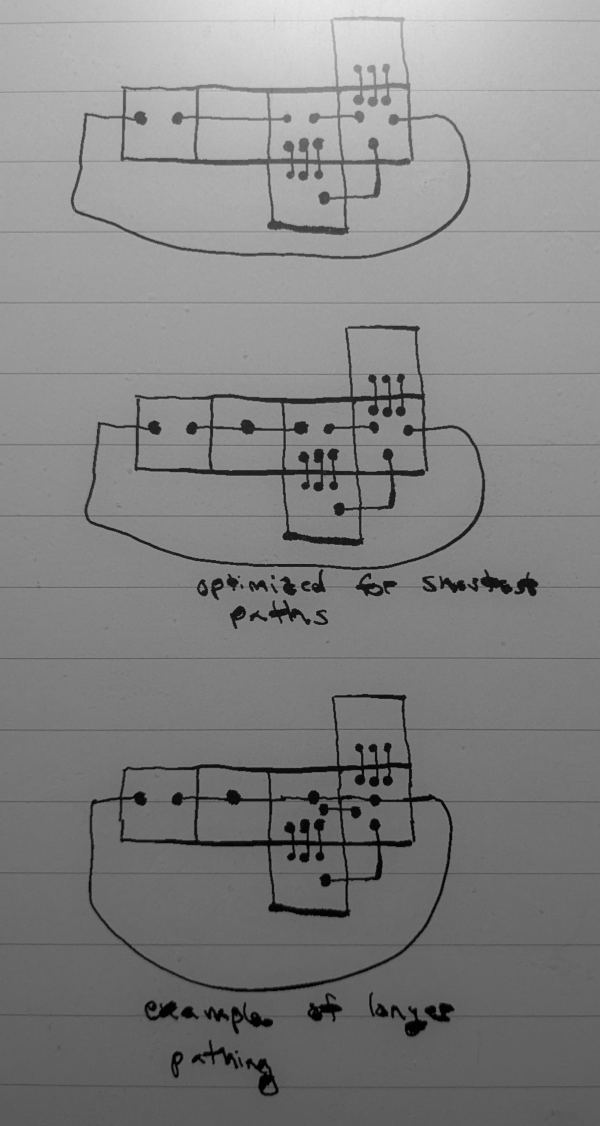 optimized for shortest
paths
example of longer
pathing